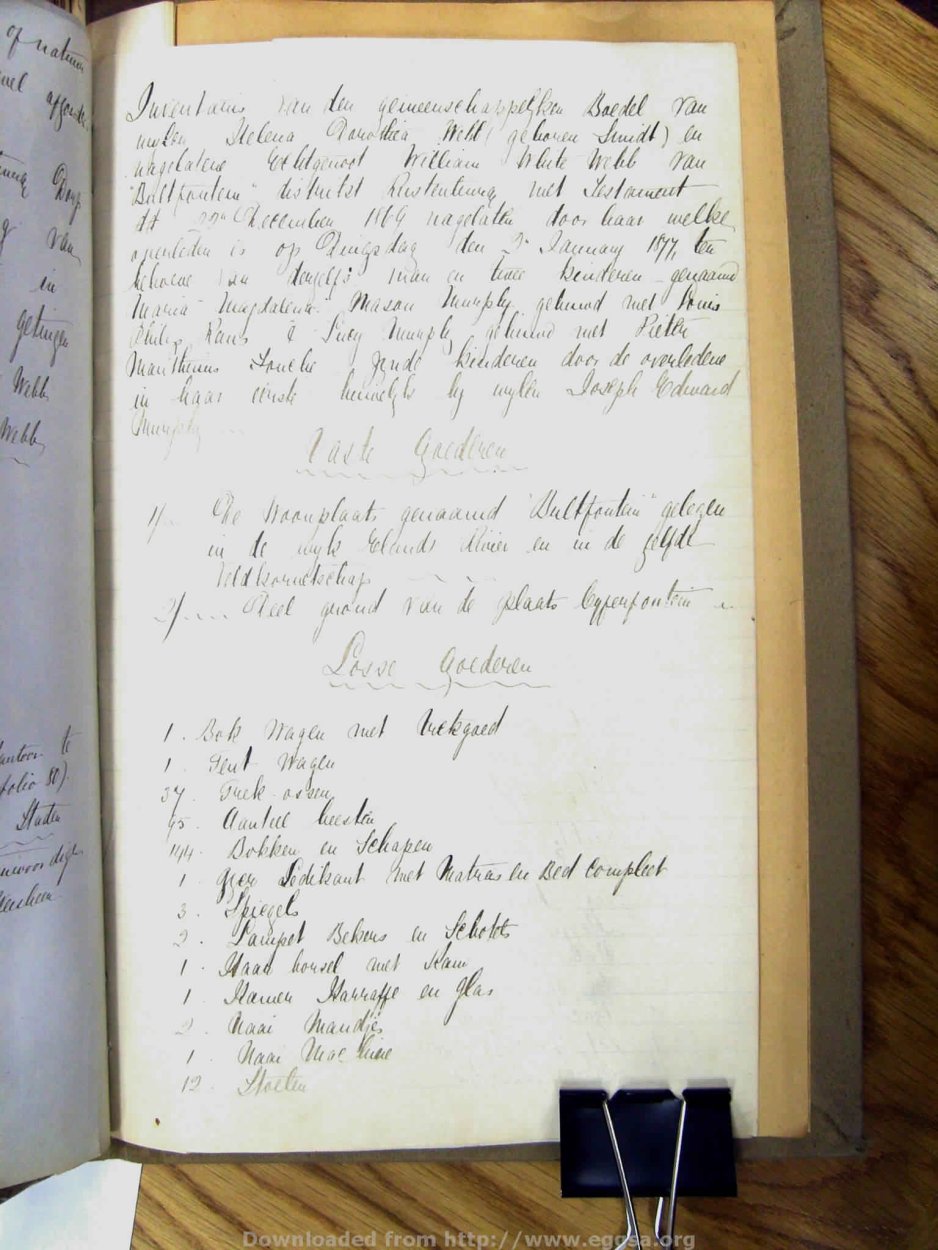 of natuur
Inventaris van den gemeenschappelyken Boedel van
wylen Helena Dorothea Webb (geboren Smidt) en
nagelatene Echtgenoot William White Webb van
"Bultfontein" distrikt Rustenburg met Testament
dd 22n December 1869 nagelaten door haar welke
overleden is op Dingsdag den 2n January 1877, ten
behoeve van derzelfs man en twee kinderen genaamd
Maria Magdalena Mason Murphy gehuwd met Louis
Philip Raus & Lucy Murphy gehuwd met Pieter
Marthinus zynde kinderen door de overledene
in haar eerste huwelyk by wylen Joseph Edward
Murphy
Vaste Goederen
1/. De Woonplaats genaamd "Bultfontein" gelegen
in de wyk Elands Rivier en in de zelfde
Veldkornetschap
2/. Deel grond van de plaats Cyferfontein
Losse Goederen
1. Bok Wagen met trekgoed
1. Tent Wagen
37. Trek ossen
95. Aanteel beesten
144. Bokken en Schapen
1. Yzer Ledikant met Matras en Bed Compleet
3. Spiegels
2. Lampet Bekers en Schotels
1. Haar borsel met Kam
1. Kamer Karraffe en glas
2. Naai Mandjes
1. Naai Machine
12. Stoelen
van
in
getuigen
Webb
Webb
te
folio 80).
Staten
Downloaded from http://www.eggsa.org